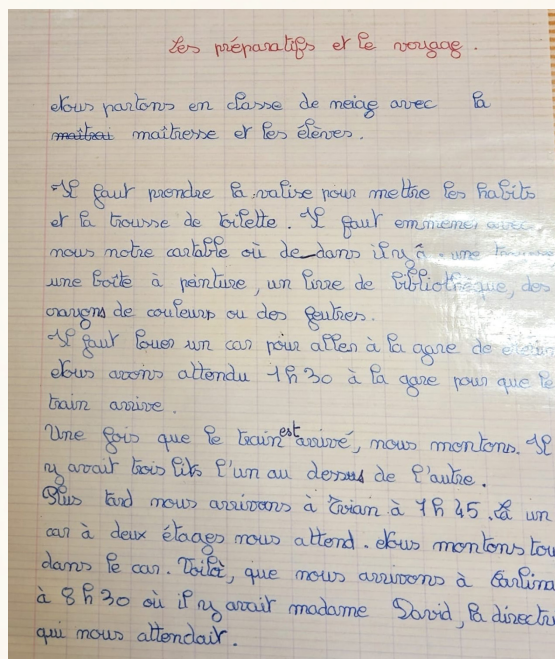 Les préparatifs et le voyage.
Nous partons en classe de neige avec la
maîtresse et les élèves.
Il faut prendre la valise pour mettre les habits
et la trousse de toilette. Il faut emmener avec
nous notre cartable où de dans il y a une
une boîte à peinture, un livre de bibliothèque, des
crayons de couleurs ou des feutres.
Il faut louer un car pour aller à la gare de
Nous avons attendu 1h30 à la gare pour que le
train arrive.
Une fois que le train est arrivé, nous montons. Il
y avait trois lits l'un au dessus de l'autre.
Plus tard nous arrivons à à 1h45. Là un
car à deux étages nous attend. Nous montons tou
dans le car. Voilà, que nous arrivons à
à 8h30 où il y avait madame David, la directri
qui nous attendait.